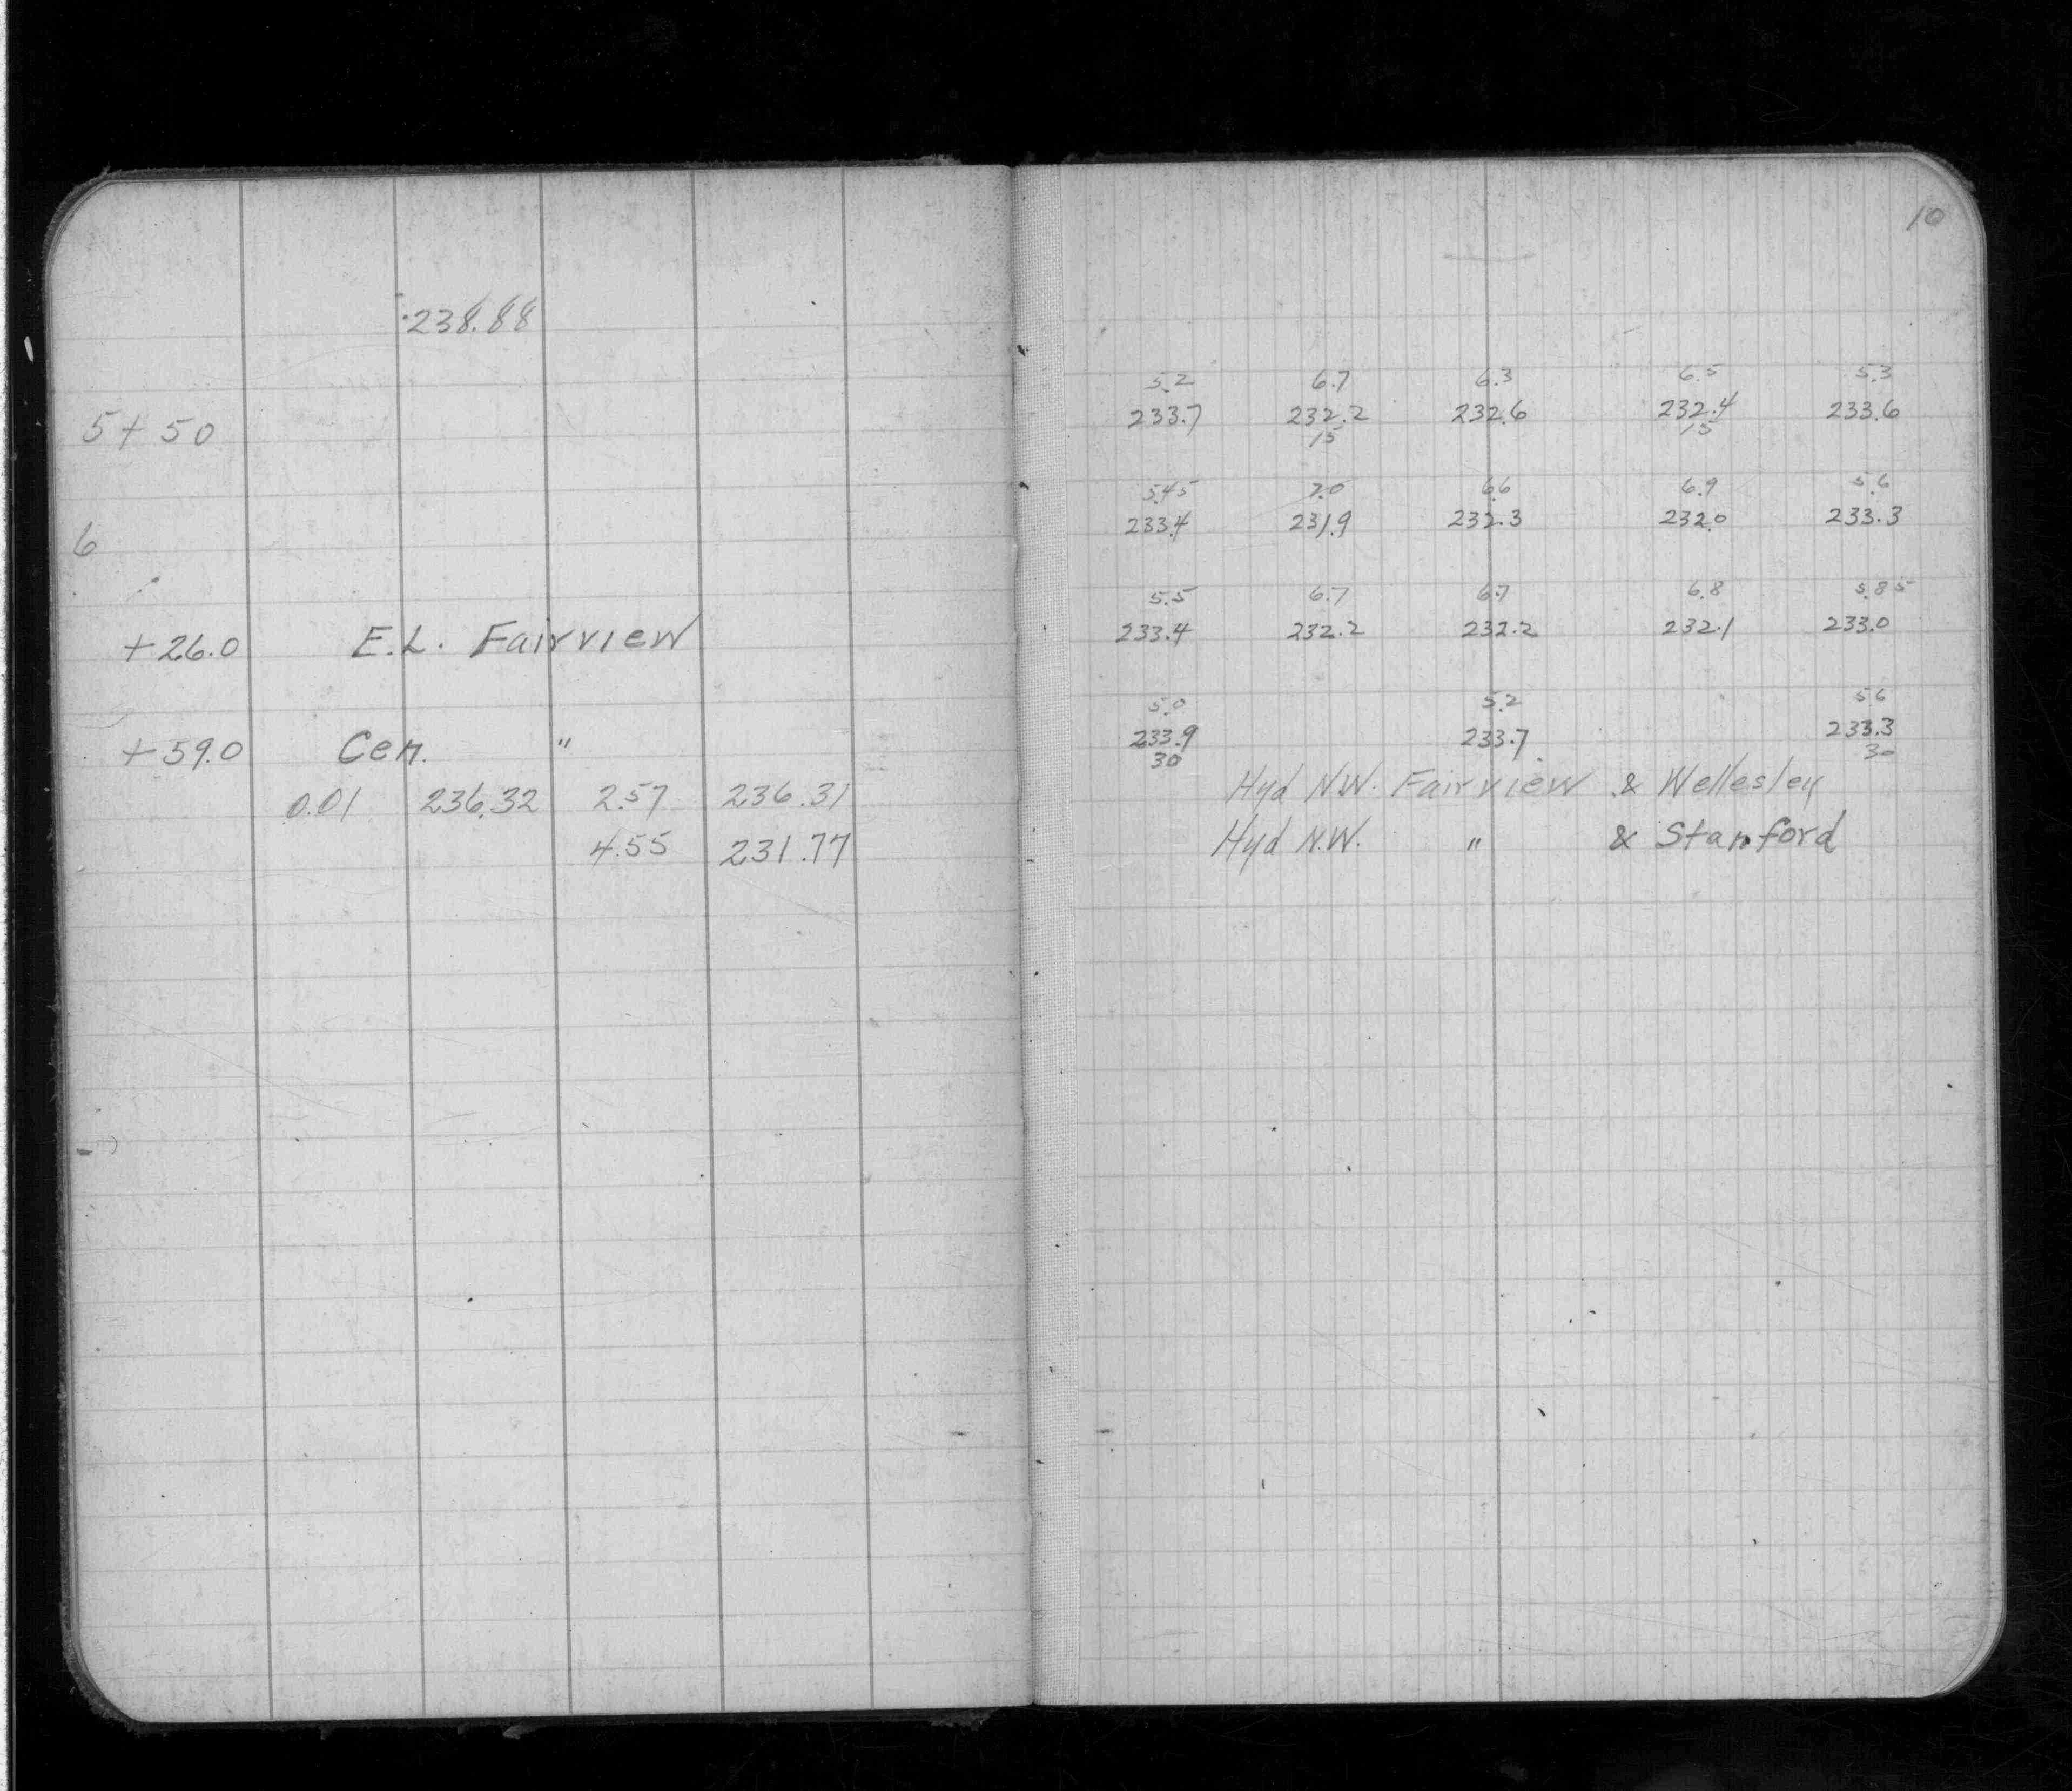 10
238.88
5.2 6.7 6.3 6.5 5.3
5+50 233.7 232.2 232.6 232.4 233.6
15 15
5.45 7.0 6.6 6.9 5.6
6 233.4 231.9 232.3 232.0 233.3
5.5 6.7 6.7 6.8 5.85
+26.0 E.L. Fairview 233.4 232.2 232.2 232.1 233.0
5.0 5.2 5.6
+59.0 Cen. " 233.9 233.7 233.3
30 30
0.01 236.32 2.57 236.31 Hyd N.W. Fairview & Wellesley
4.55 231.77 Hyd N.W. " & Stanford